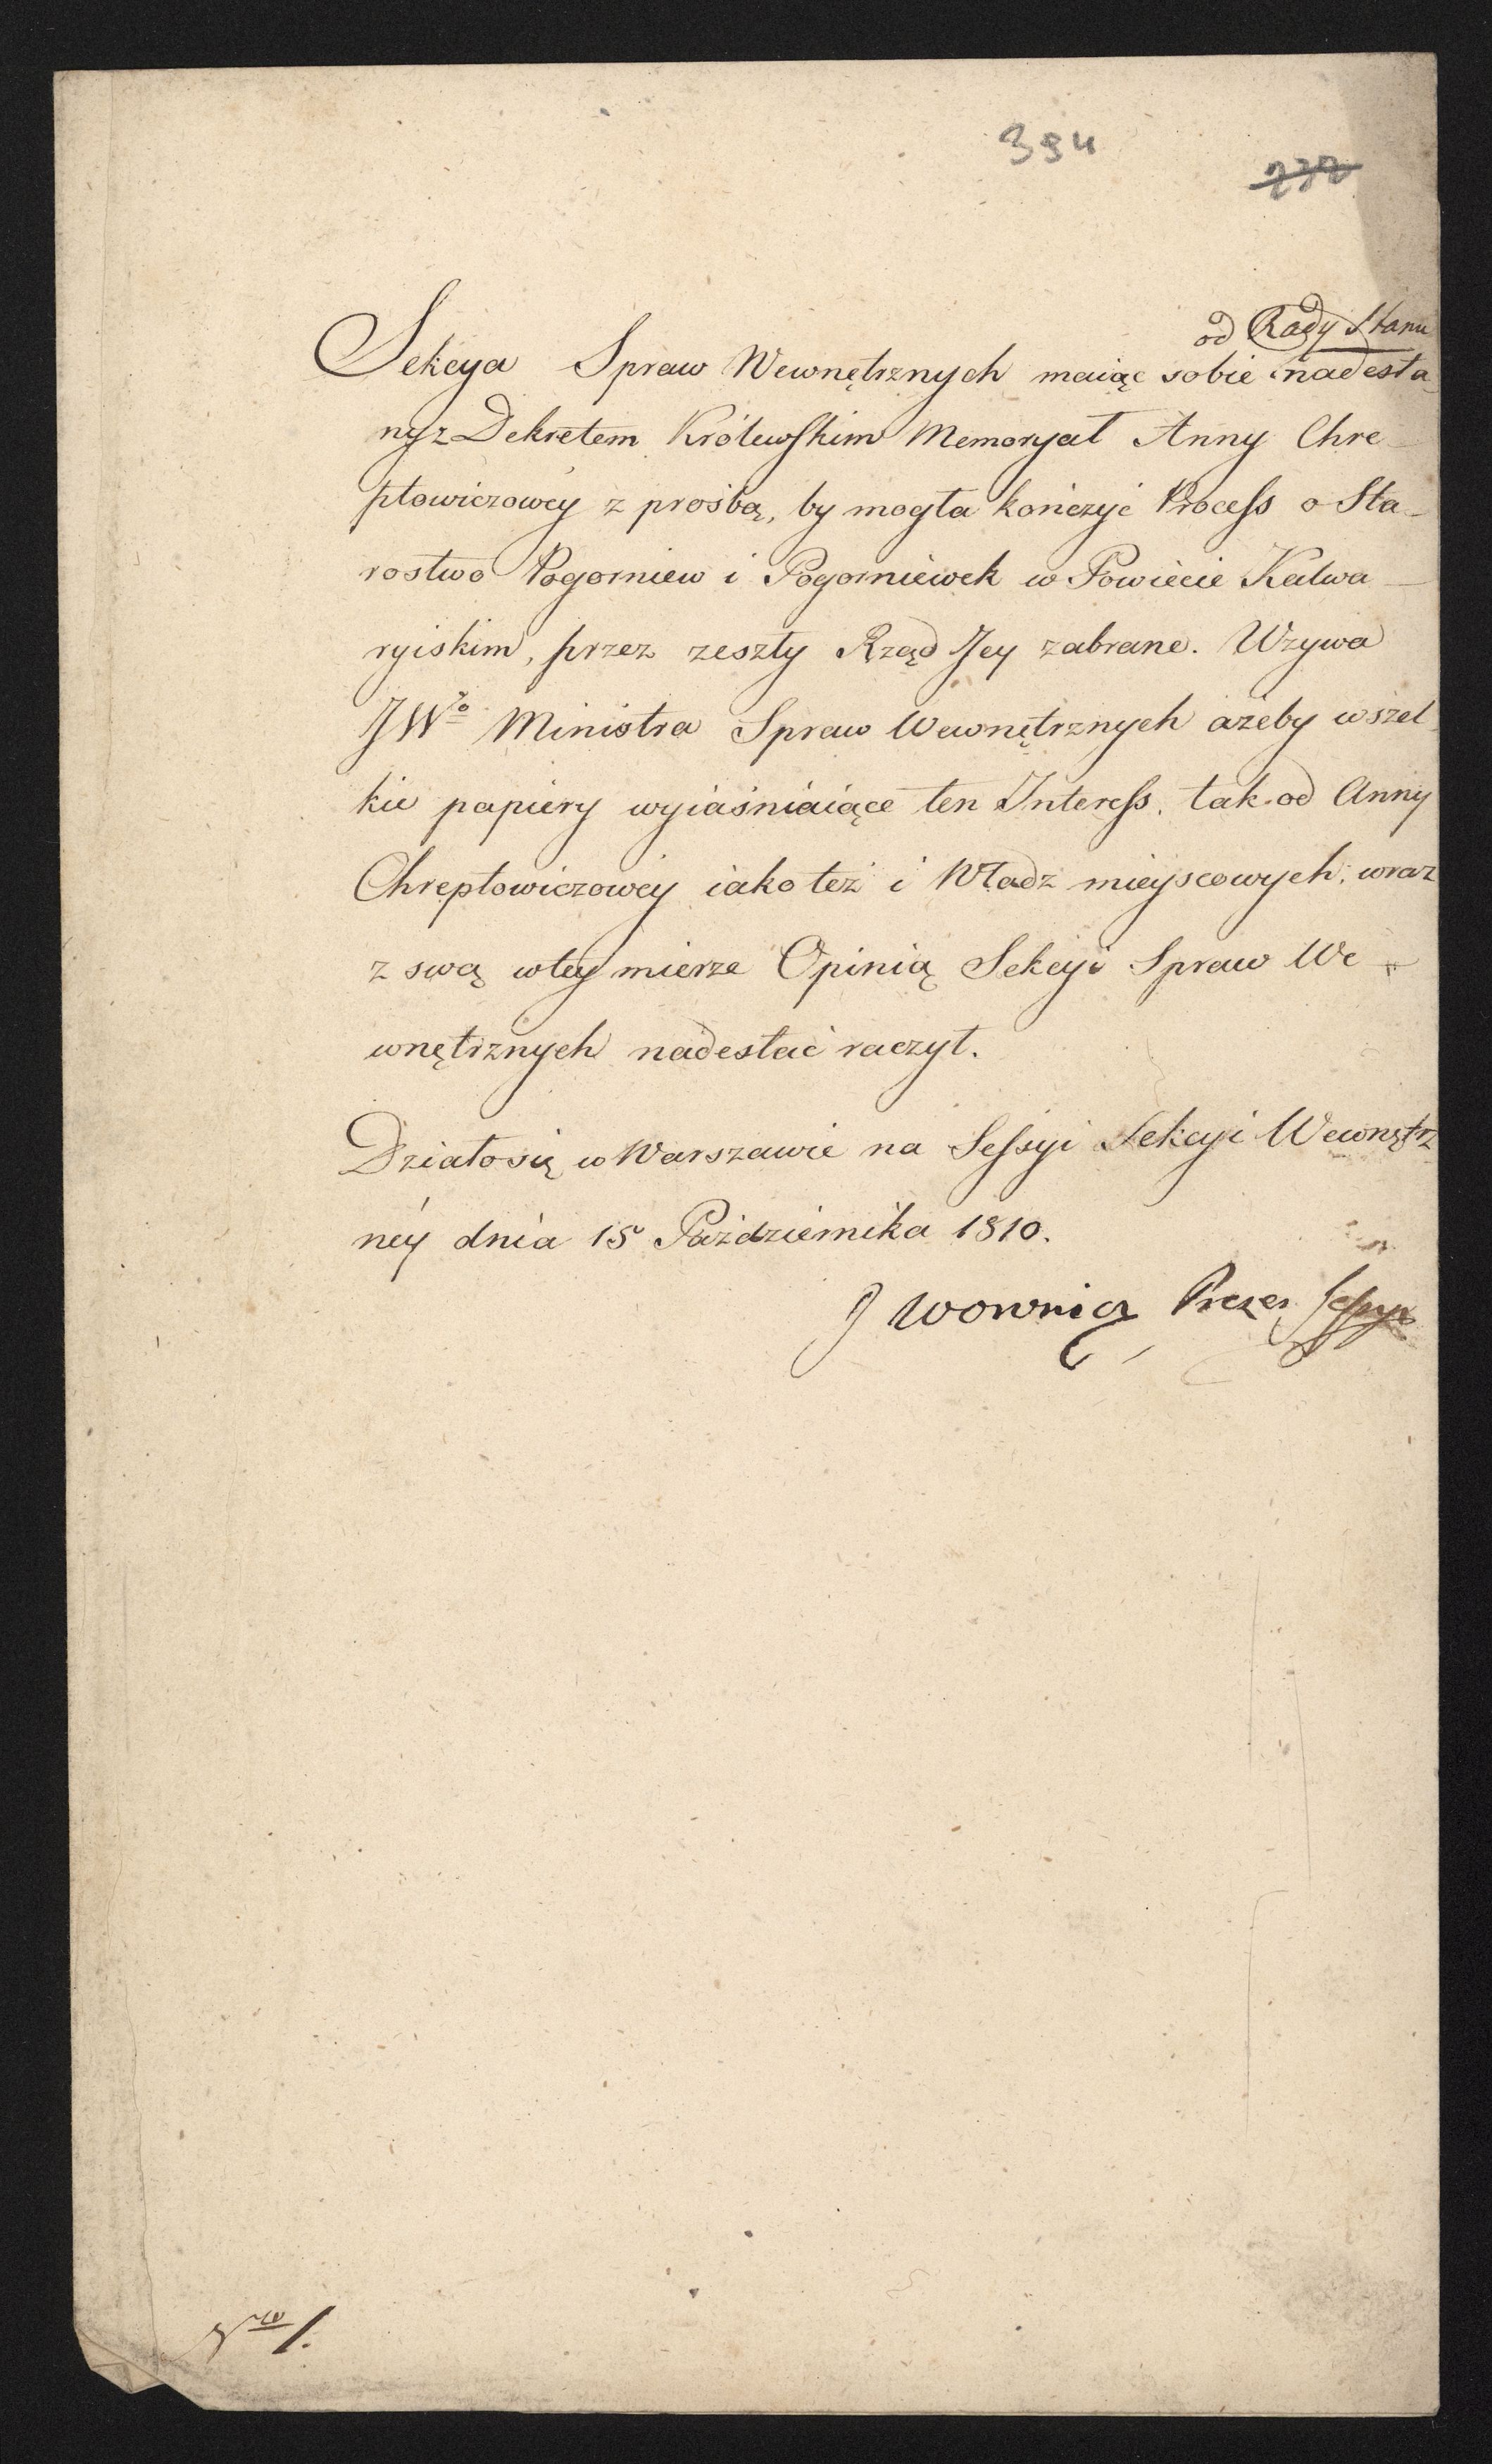 394
272
od Rady Stanu
Sekcya Spraw Wewnętrznych maiąc sobie nadesła-
ny z Dekretem Królewskim Memoryał Anny Chre-
ptowiczowéy z prośbą, by mogła kończyć Process o Sta-
rostwo Pogorniew i Pogorniewek w Powiecie Kalwa-
ryiskim, przez zeszły Rząd Jey zabrane. Wzywa
JWgo Ministra Spraw Wewnętrznych ażeby wszel-
kie papiery wyiaśniaiące ten Interess, tak od Anny
Chreptowiczowéy iako też i Władz mieyscowych, wraz
z swą w téy mierze Opinią Sekcyi Spraw We-
wnętrznych nadesłać raczył.
Działo się w Warszawie na Sessyi Sekcyi Wewnętrz-
néy dnia 15 Października 1810.
Prezes
Nro 1.